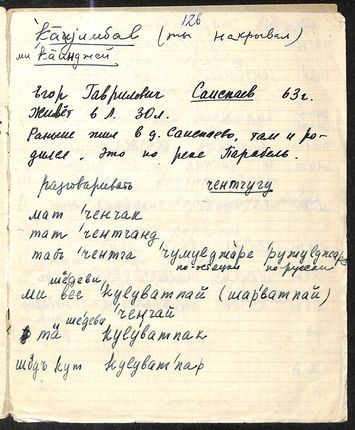 126
'кӓӽӯлɨмбав (ты накрывал)
ми 'кӓинджей
Егор Гаврилович Саиспаев 63 г.
Живёт в Л. 30 л.
Раньше жил в д. Саиспаево, там и ро-
дился. Это по реке Парабель.
разговаривать чентчугу
мат 'ченгак
тат 'чентчанд
таб 'чентга 'чумулджӓре 'ружулджаре
по-остяцки по-русски
шедеви
ми все кулуватпай (шар'ватпай)
шедеви 'ченгай
тӓ кулуватпак
шӧдъ кут кулуват'пар